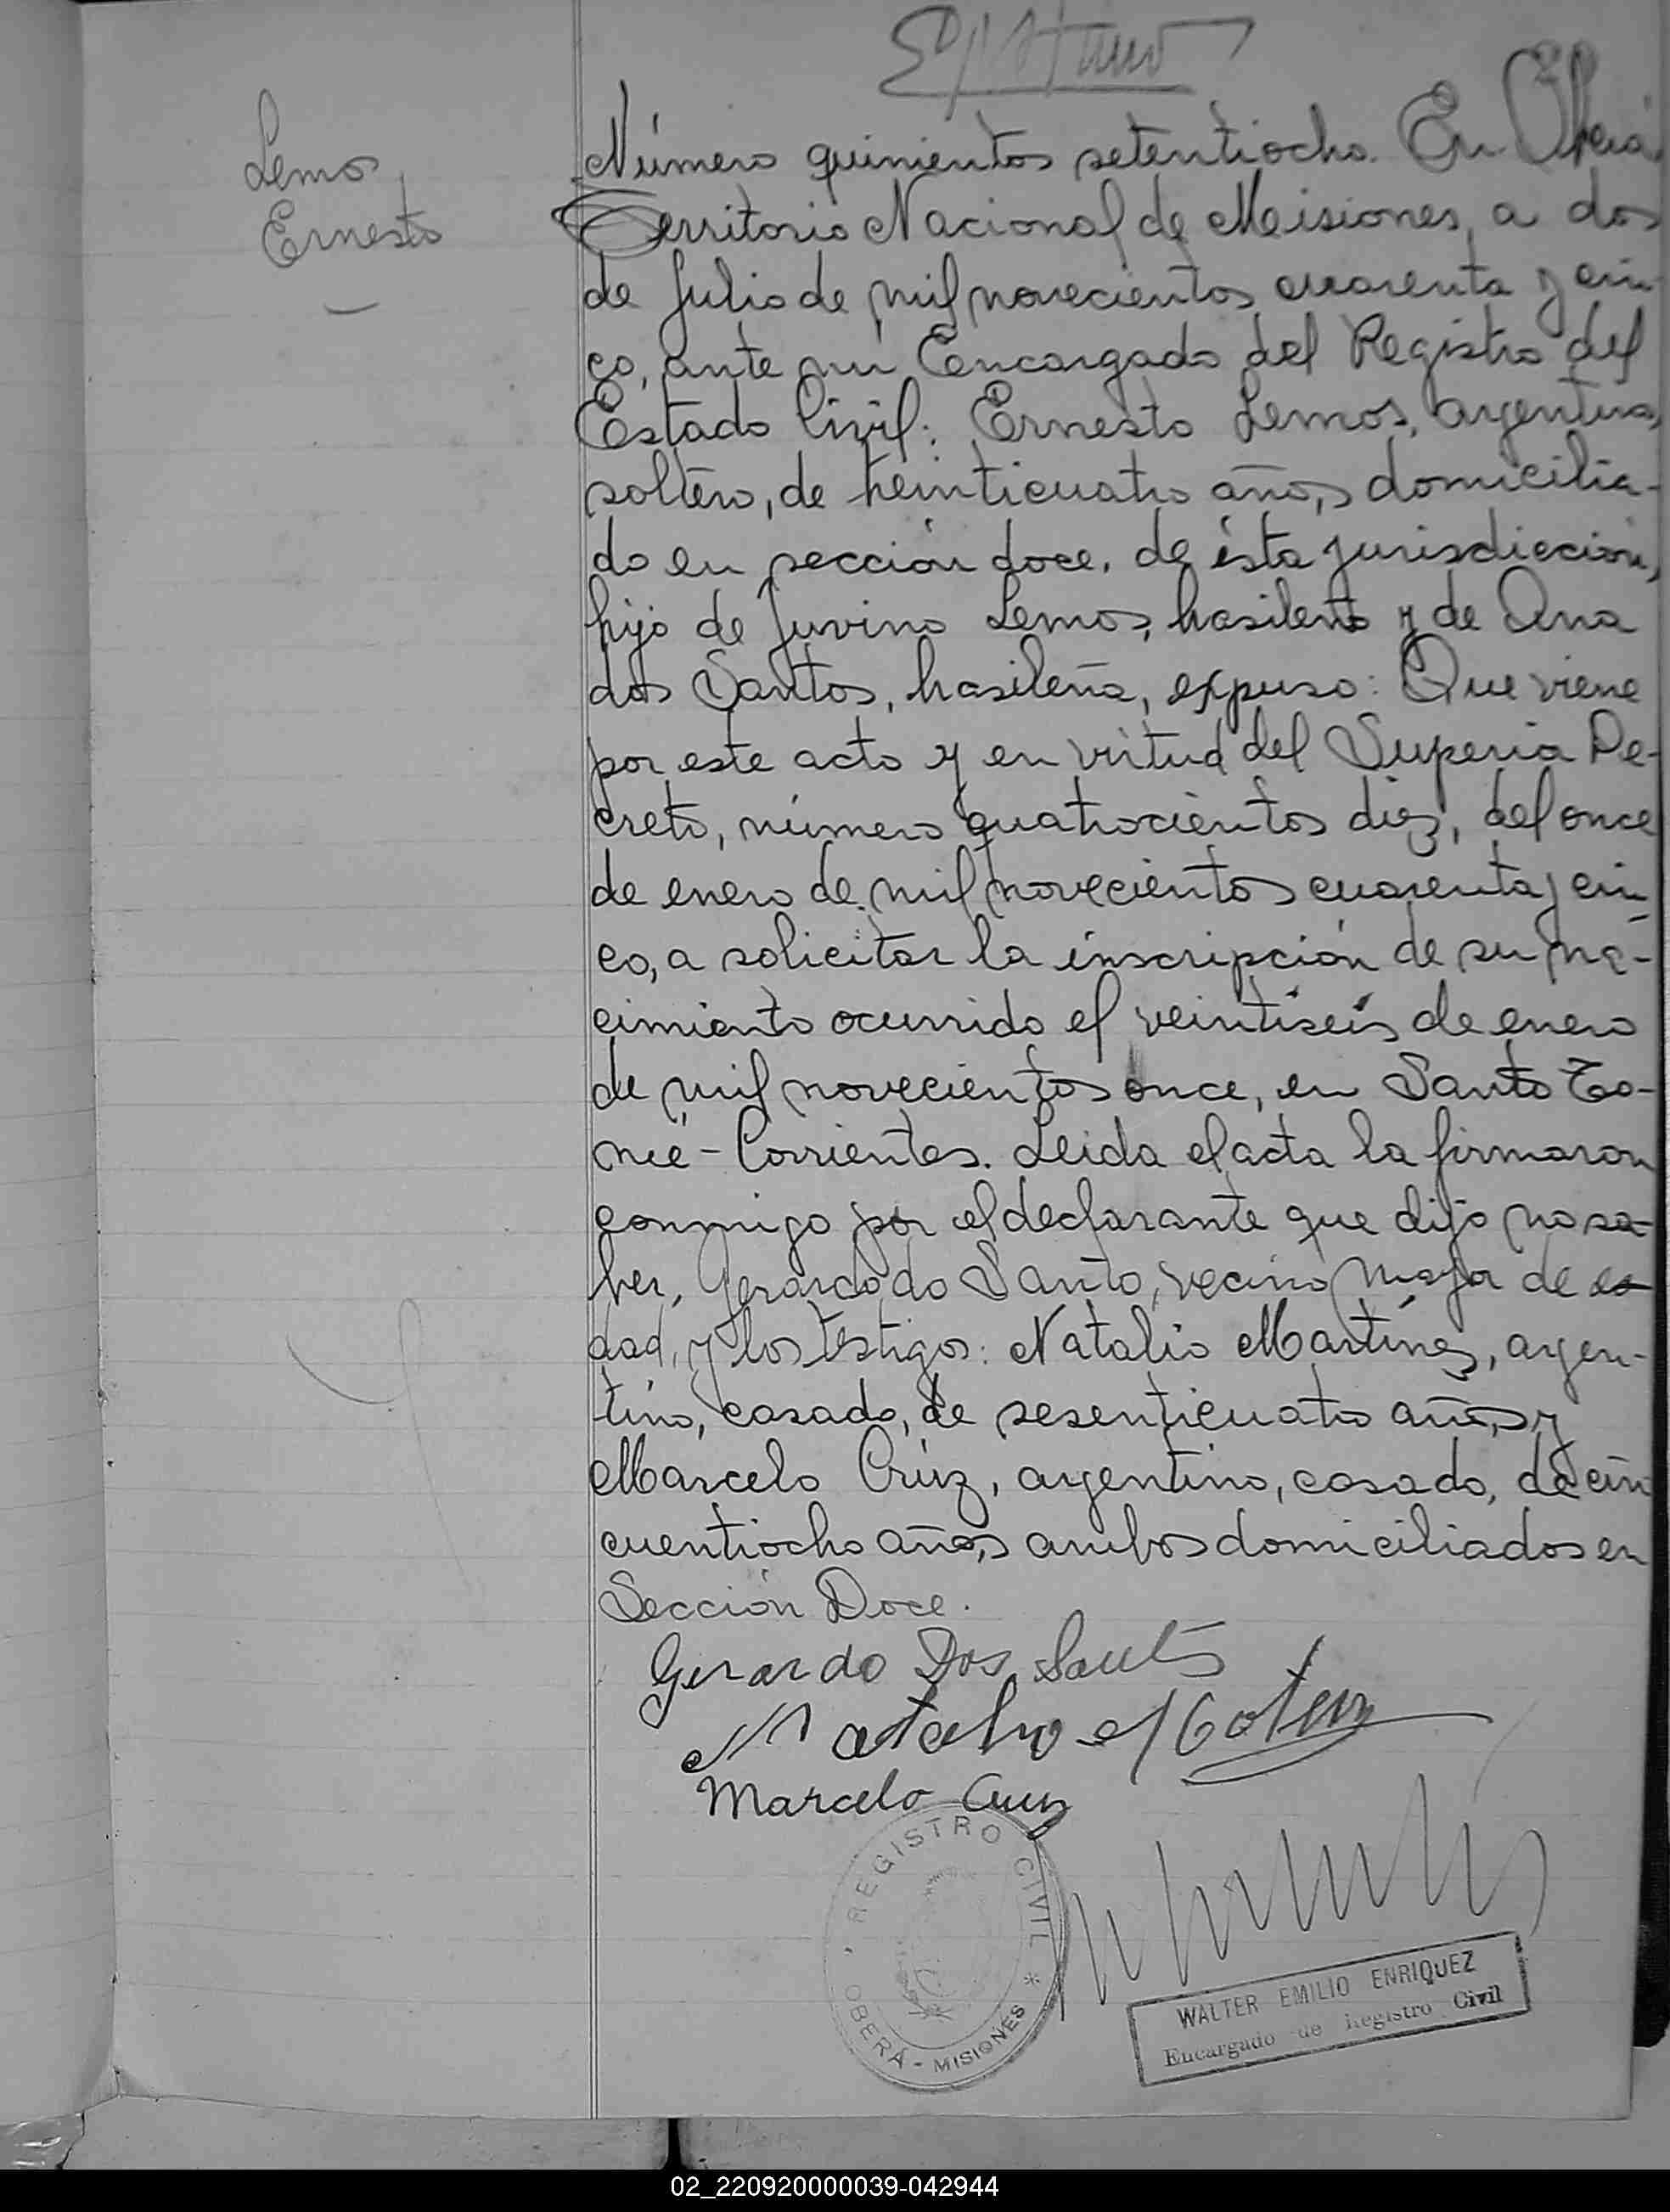 Lemos
Ernesto
Número quinientos setentiocho. En Oberá
Territorio Nacional de Misiones, a dos
de Julio de mil novecientos cuarenta y cin-
co, ante mi Encargado del Registro del
Estado Civil: Ernesto Lemos, argentino,
soltero, de treinticuatro años, domicilia-
do en sección doce, de ésta jurisdicción,
hijo de Juvino Lemos, brasileño y de Ana
dos Santos, brasileña, expuso: Que viene
por este acto y en virtud del Superior De-
creto, número quatrocientos diez, del once
de enero de mil novecientos cuarenta y cin-
co, a solicitar la inscripción de su na-
cimiento ocurrido el veintiseis de enero
de mil novecientos once, en Santo To-
mé - Corrientes. Leida el acta la firmaron
conmigo por el declarante que dijo no sa-
ber, Gerardo do Santo, vecino mayor de e
dad, y los testigos: Natalio Martínez, argen-
tino, casado, de sesenticuatro años, y
Marcelo Crúz, argentino, casado, de cin
cuentiocho años, ambos domiciliados en
Sección Doce.
Gerardo Dos Santos
Marcelo Cruz
REGISTRO CIVIL * OBERÁ - MISIONES
WALTER EMILIO ENRIQUEZ
Encargado de Registro Civil
02_220920000039-042944